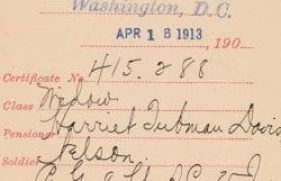 Washington, D.C.
APR 16 1913, 190
Certificate No. 415.288
Class Widow
Pensioner Harriet Tubman Davis
Soldier Nelson